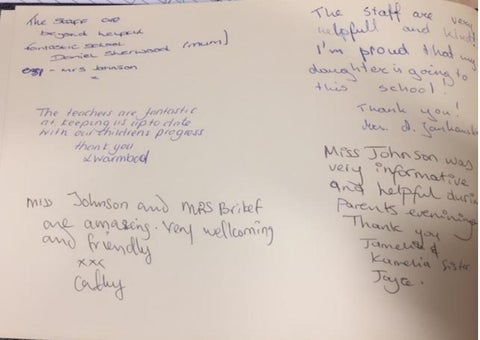 The staff are
beyond helpful
fantastic school
Daniel Sherwood (mum)
eg - mrs Johnson
x
The teachers are fantastic
at keeping us up to date
with our childrens progress
thank you
L Warmbod
Miss Johnson and MRS Britef
are amazing. Very wellcoming
and friendly
xxx
Cathy
The staff are very
helpfull and kind!
I'm proud that my
daughter is going to
this school!
Thank you!
Miss Johnson was
very informative
and helpful durin
Parents evening
Thank you
Jamelia &
Kamelia sister
Joyce.